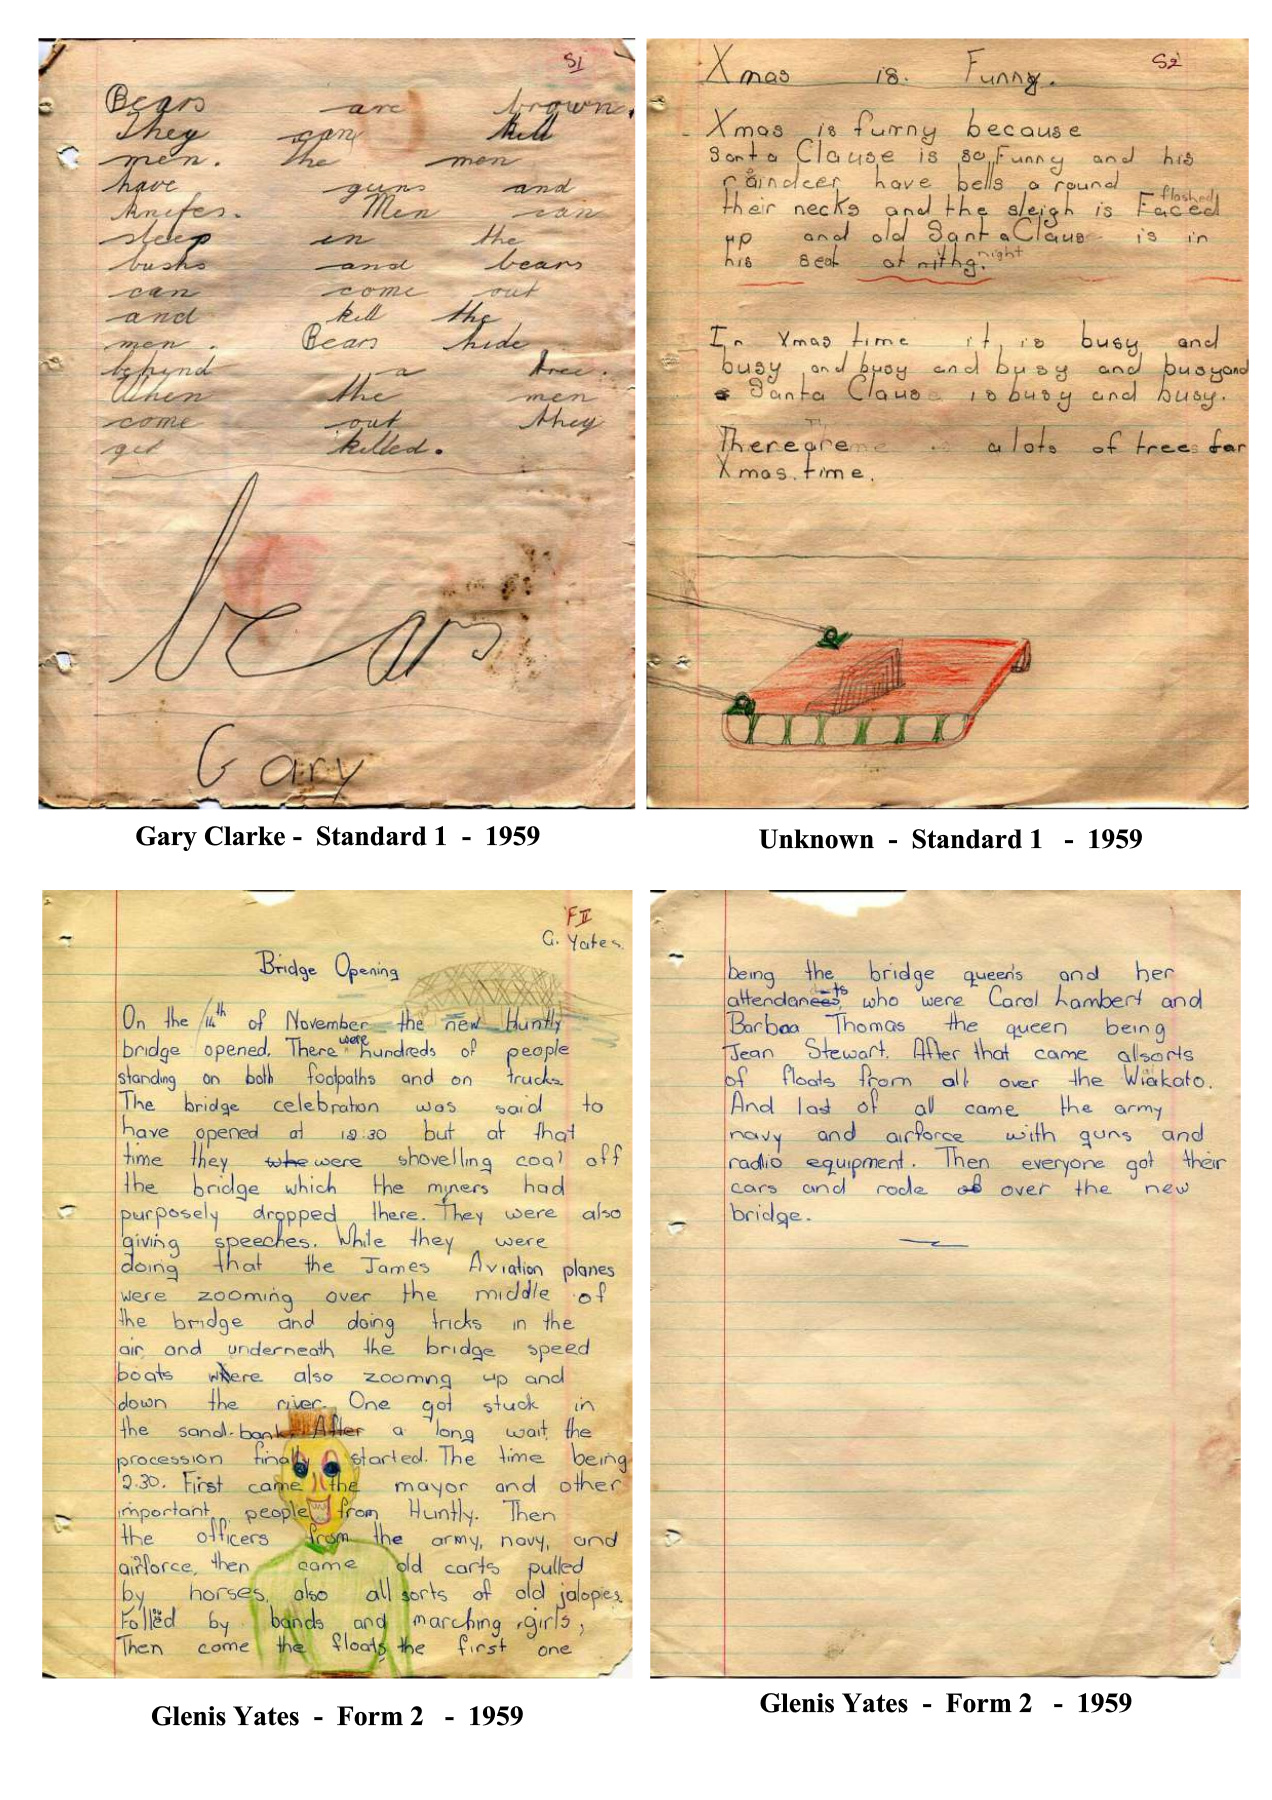 S1
Bears are brown.
They can kill
men. the men
have guns and
knifes. Men can
sleep in the
bushs and bears
can come out
and kill the
men. Bears hide
behind a tree.
When the men
come out they
get killed.
bears
Gary
Gary Clarke - Standard 1 - 1959
S2
Xmas is. Funny.
Xmas is furnny because
Santa Clause is so Funny and his
raindeer have bells a round
flashed
their necks and the sleigh is Faced
up and old Santa Claus is in
his seat at nithg. night
In Xmas time it is busy and
busy and busy and busy and busyand
Santa Claus is busy and busy.
There are a lots of trees for
Xmas. time.
Unknown - Standard 1 - 1959
F II
G. Yates.
Bridge Opening
On the 14th of November the new Huntly
bridge opened. There were hundreds of people
standing on both footpaths and on trucks
The bridge celebration was said to
have opened at 12.30 but at that
time they whe were shovelling coal off
the bridge which the miners had
purposely dropped there. They were also
giving speeches. While they were
doing that the James Aviation planes
were zooming over the middle of
the bridge and doing tricks in the
air and underneath the bridge speed
boats where also zoomng up and
down the river. One got stuck in
the sand-bank. After a long wait the
procession finally started. The time being
2.30. First came the mayor and other
important people from Huntly. Then
the officers from the army, navy, and
airforce, then came old carts pulled
by horses, also all sorts of old jalopies.
Folled by bands and marching girls,
Then come the floats, the first one
Glenis Yates - Form 2 - 1959
being the bridge queens and her
attendants who were Carol Lambert and
Barbaa Thomas the queen being
Jean Stewart. After that came allsorts
of floats from all over the Wiakato.
And last of all came the army
navy and airforce with guns and
radio equipment. Then everyone got their
cars and rode over the new
bridge.
Glenis Yates - Form 2 - 1959